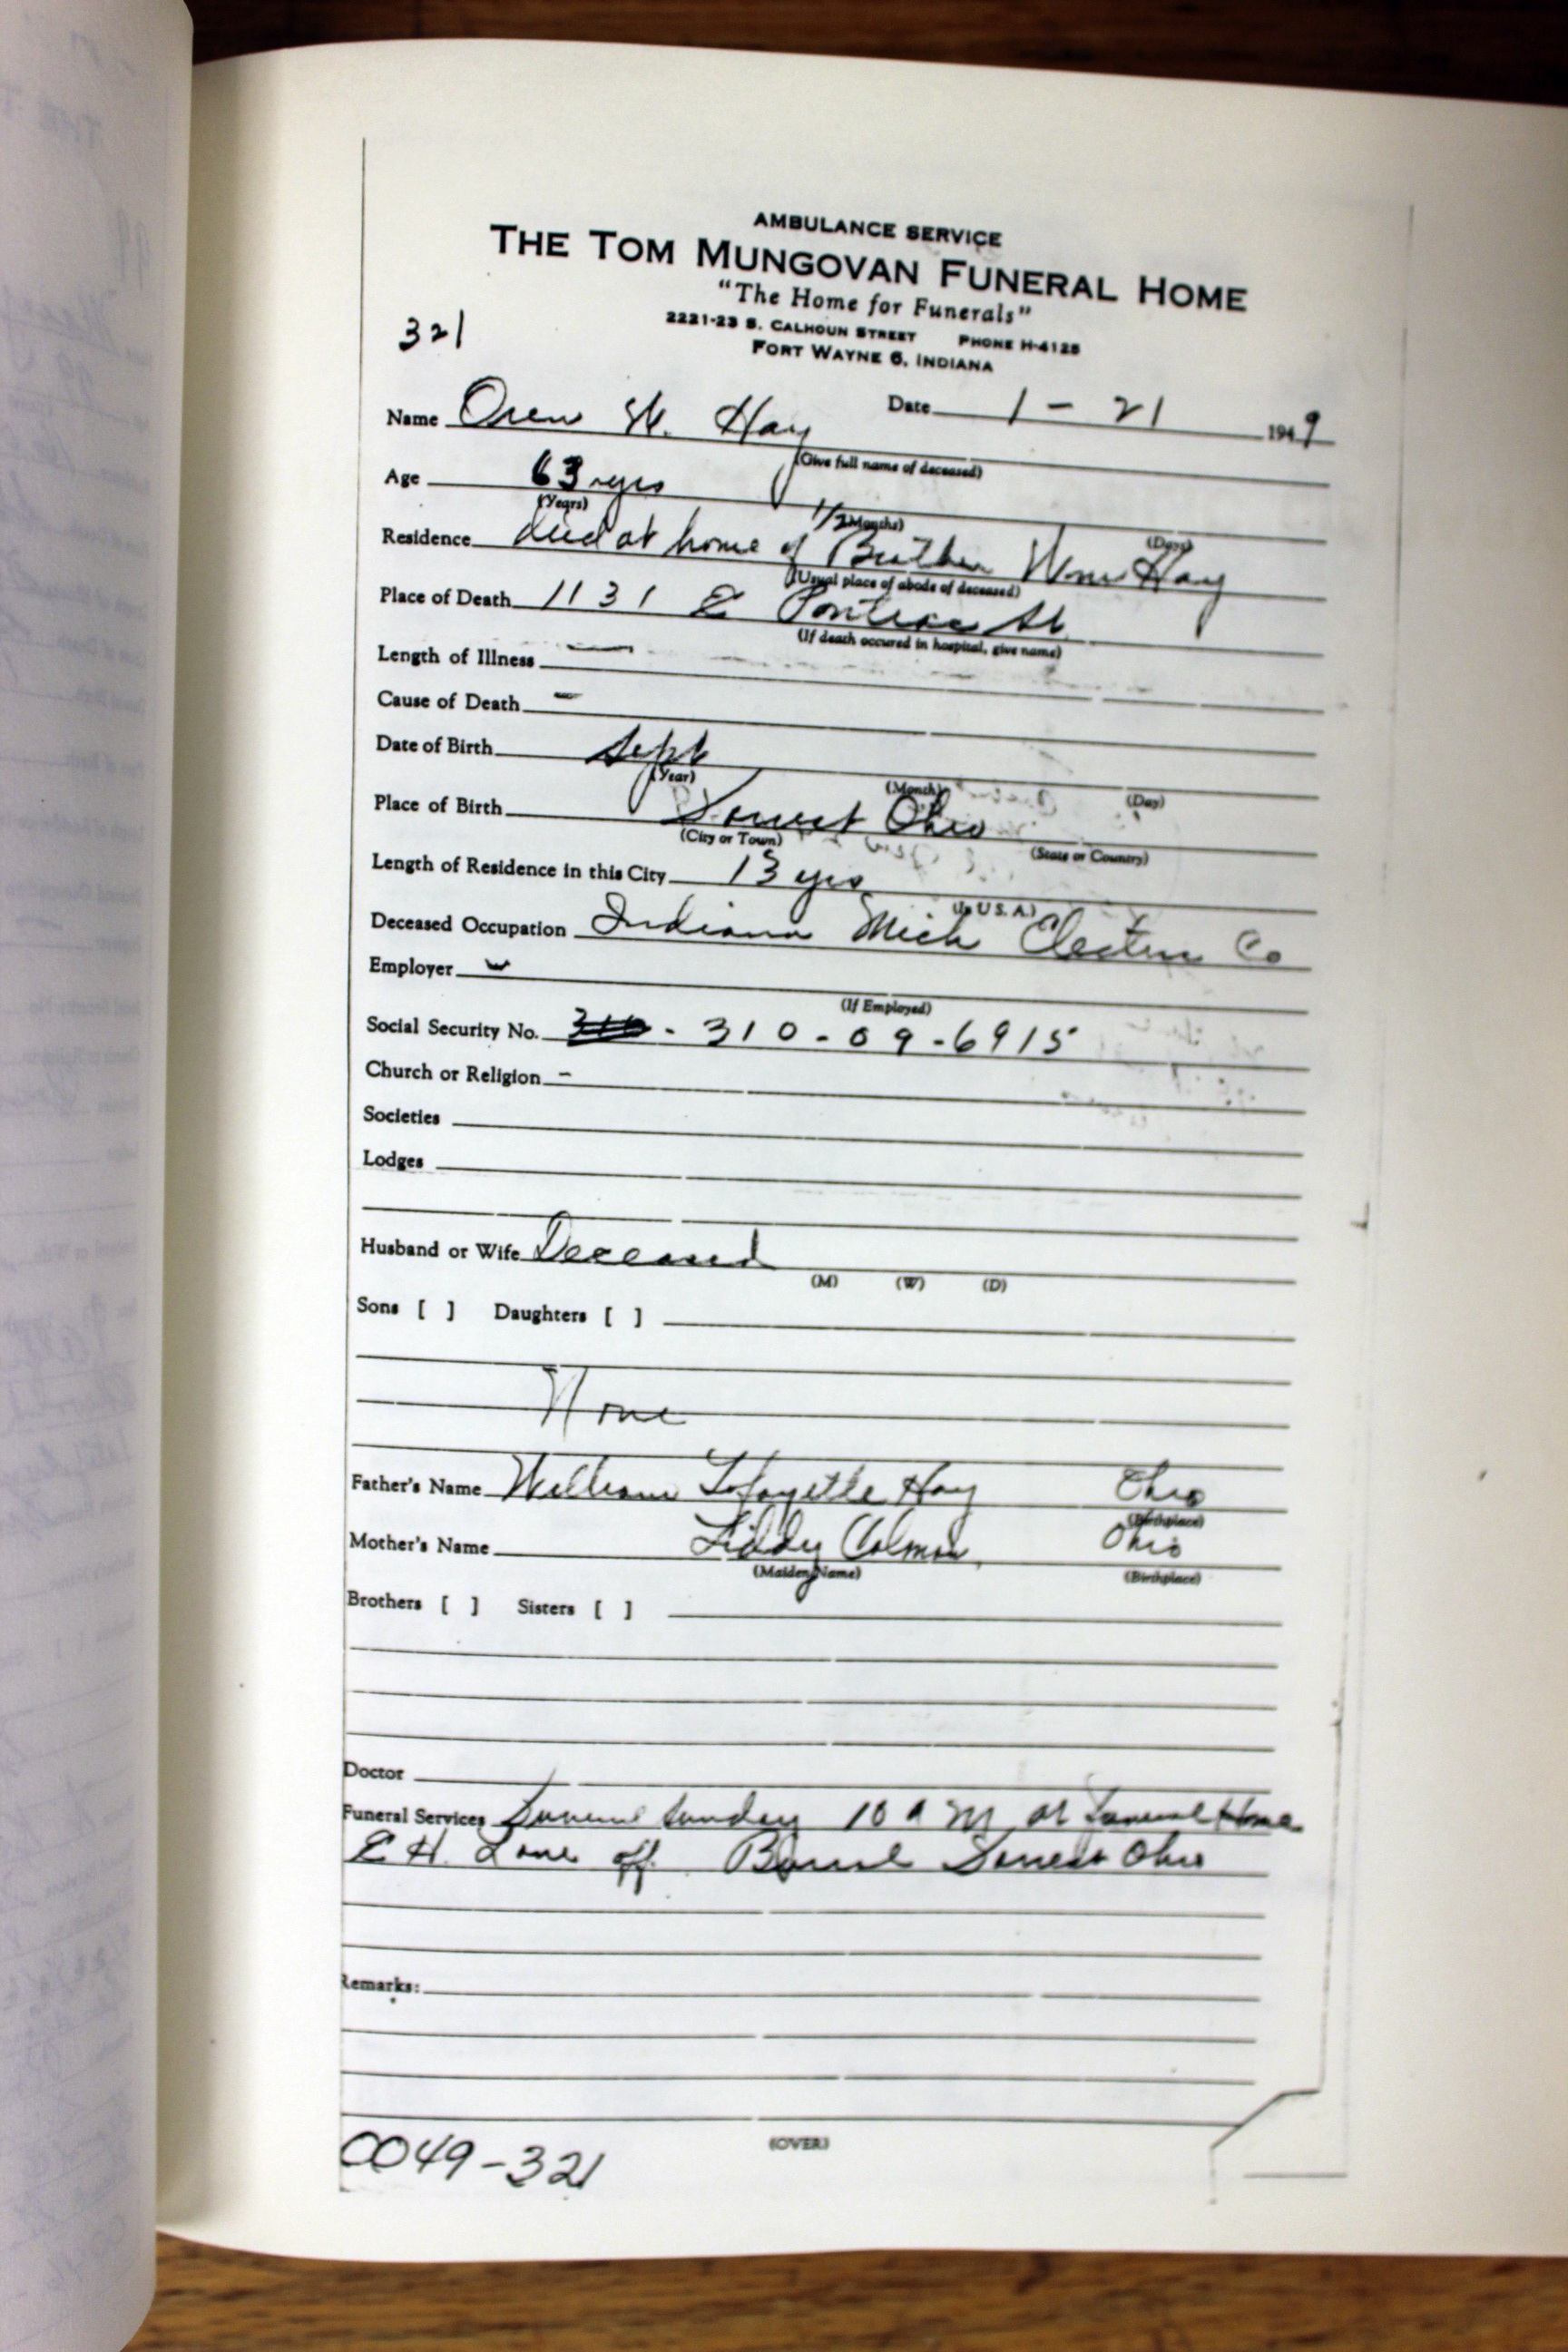 AMBULANCE SERVICE
THE TOM MUNGOVAN FUNERAL HOME
"The Home for Funerals"
2221-23 S. CALHOUN STREET PHONE H-4125
FORT WAYNE 6, INDIANA
321
Date 1 - 21 1949
Name Oren W. Hay
(Give full name of deceased)
Age 63 yrs
(Years) 1/2 (Months) (Days)
Residence died at home of Brother Wm Hay
(Usual place of abode of deceased)
Place of Death 1131 E Pontiac St
(If death occured in hospital, give name)
Length of Illness —
Cause of Death -
Date of Birth Sept
(Year) (Month) (Day)
Place of Birth Ohio
(City or Town) (State or Country)
Length of Residence in this City 13 yrs
(In U S. A.)
Deceased Occupation Indiana Mich Electric Co
Employer
(If Employed)
Social Security No. 310 - 310-09-6915
Church or Religion -
Societies
Lodges
Husband or Wife Deceased
(M) (W) (D)
Sons [ ] Daughters [ ]
None
Father's Name William Lafayette Hay Ohio
(Birthplace)
Mother's Name Liddy Colman Ohio
(Maiden Name) (Birthplace)
Brothers [ ] Sisters [ ]
Doctor
Funeral Services Funeral Sunday 10 A M at Funeral Home
E H. Lane off. Burial Ohio
Remarks:
(OVER)
0049-321